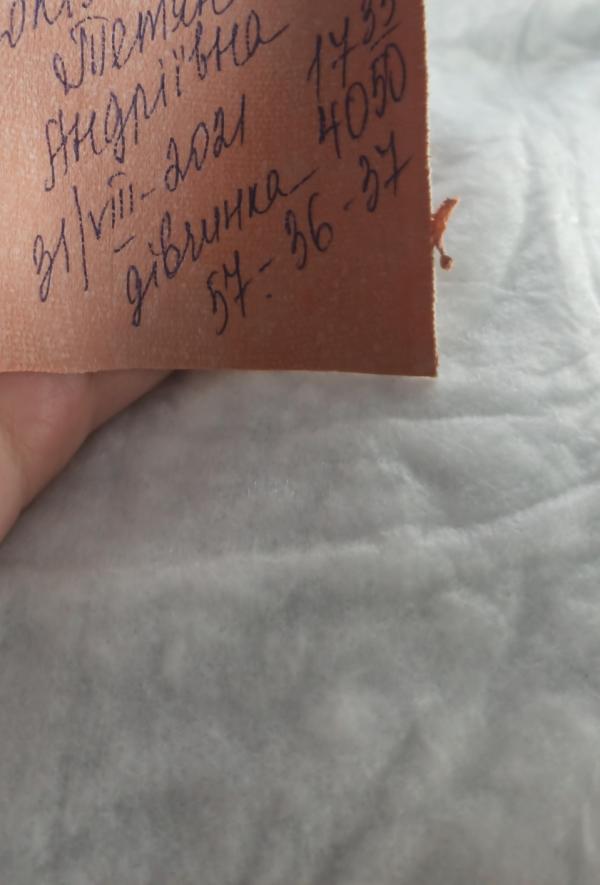 Тетян
Андріївна 17 35
31/VIII-2021 4050
дівчинка
57-36-37